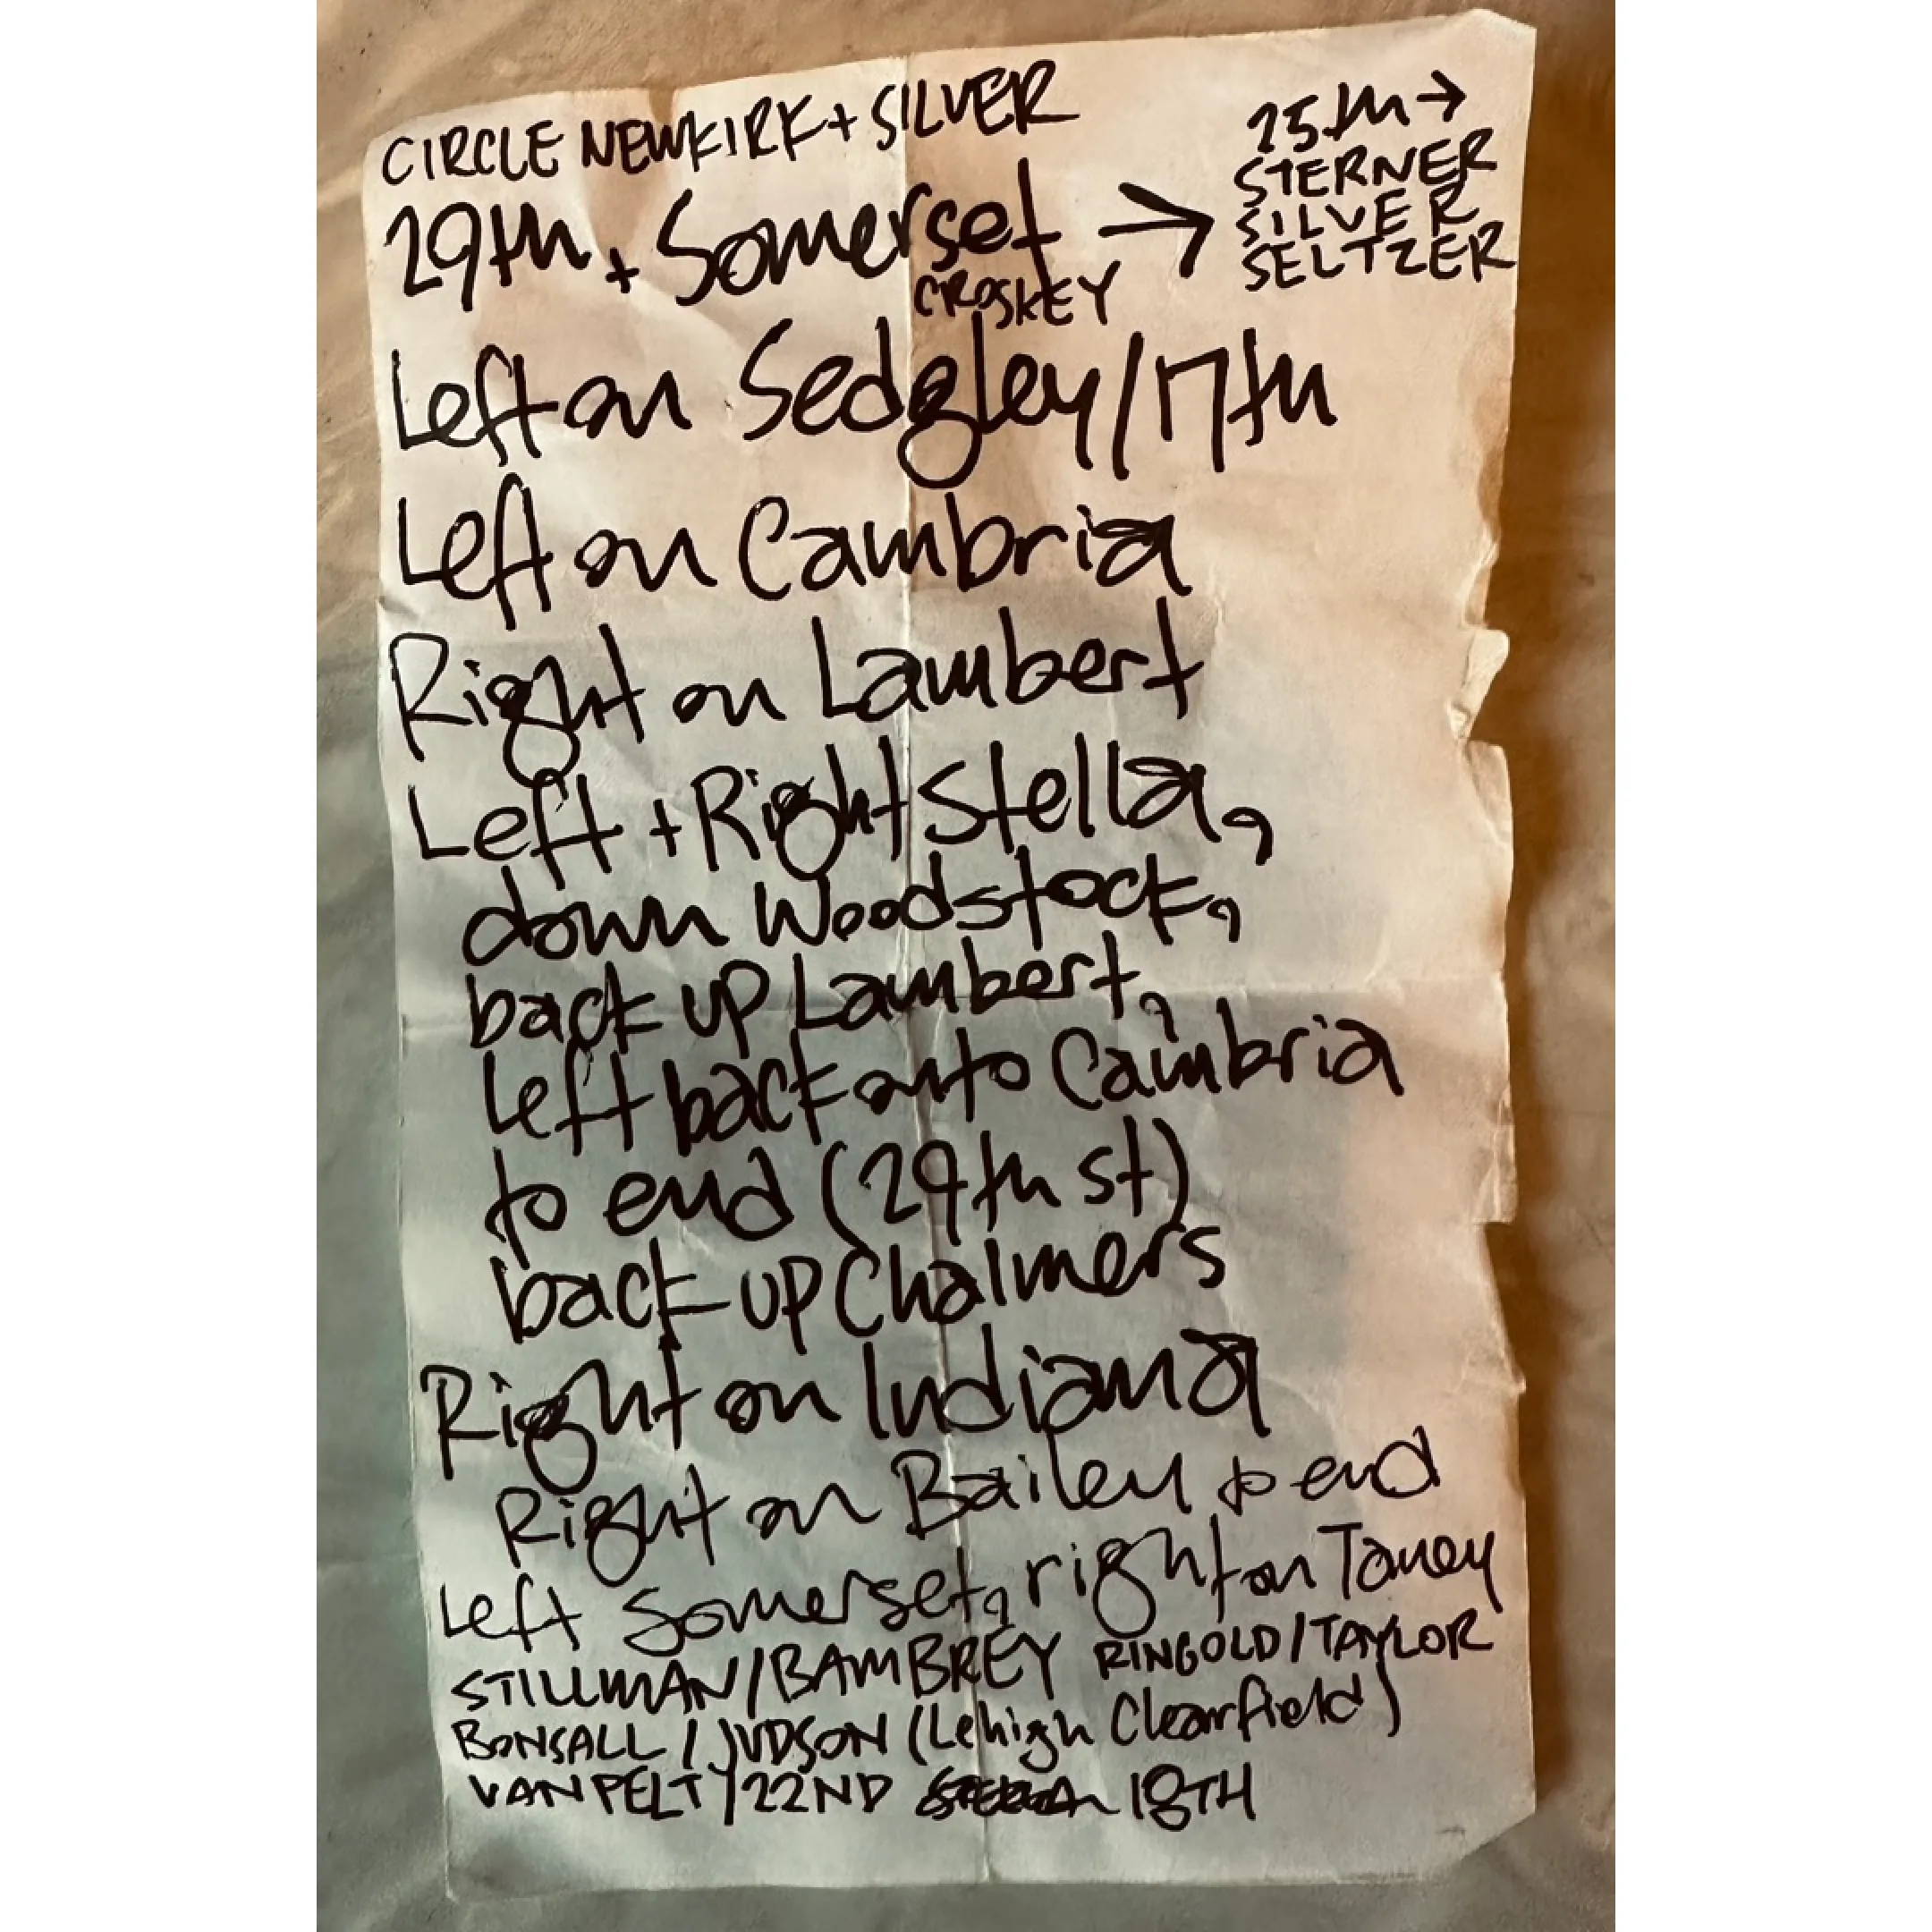 CIRCLE NEWKIRK + SILVER
25th →
STERNER
SILVER
SELTZER
29th + Somerset →
CROSKEY
Left on Sedgley/17th
Left on Cambria
Right on Lambert
Left + Right Stella,
down Woodstock,
back up Lambert,
left back onto Cambria
to end (29th st)
back up Chalmers
Right on Indiana
Right on Bailey to end
Left Somerset, right on Taney
STILLMAN/BAMBREY RINGOLD/TAYLOR
BONSALL / JUDSON (Lehigh Clearfield)
VAN PELT/22ND 18TH